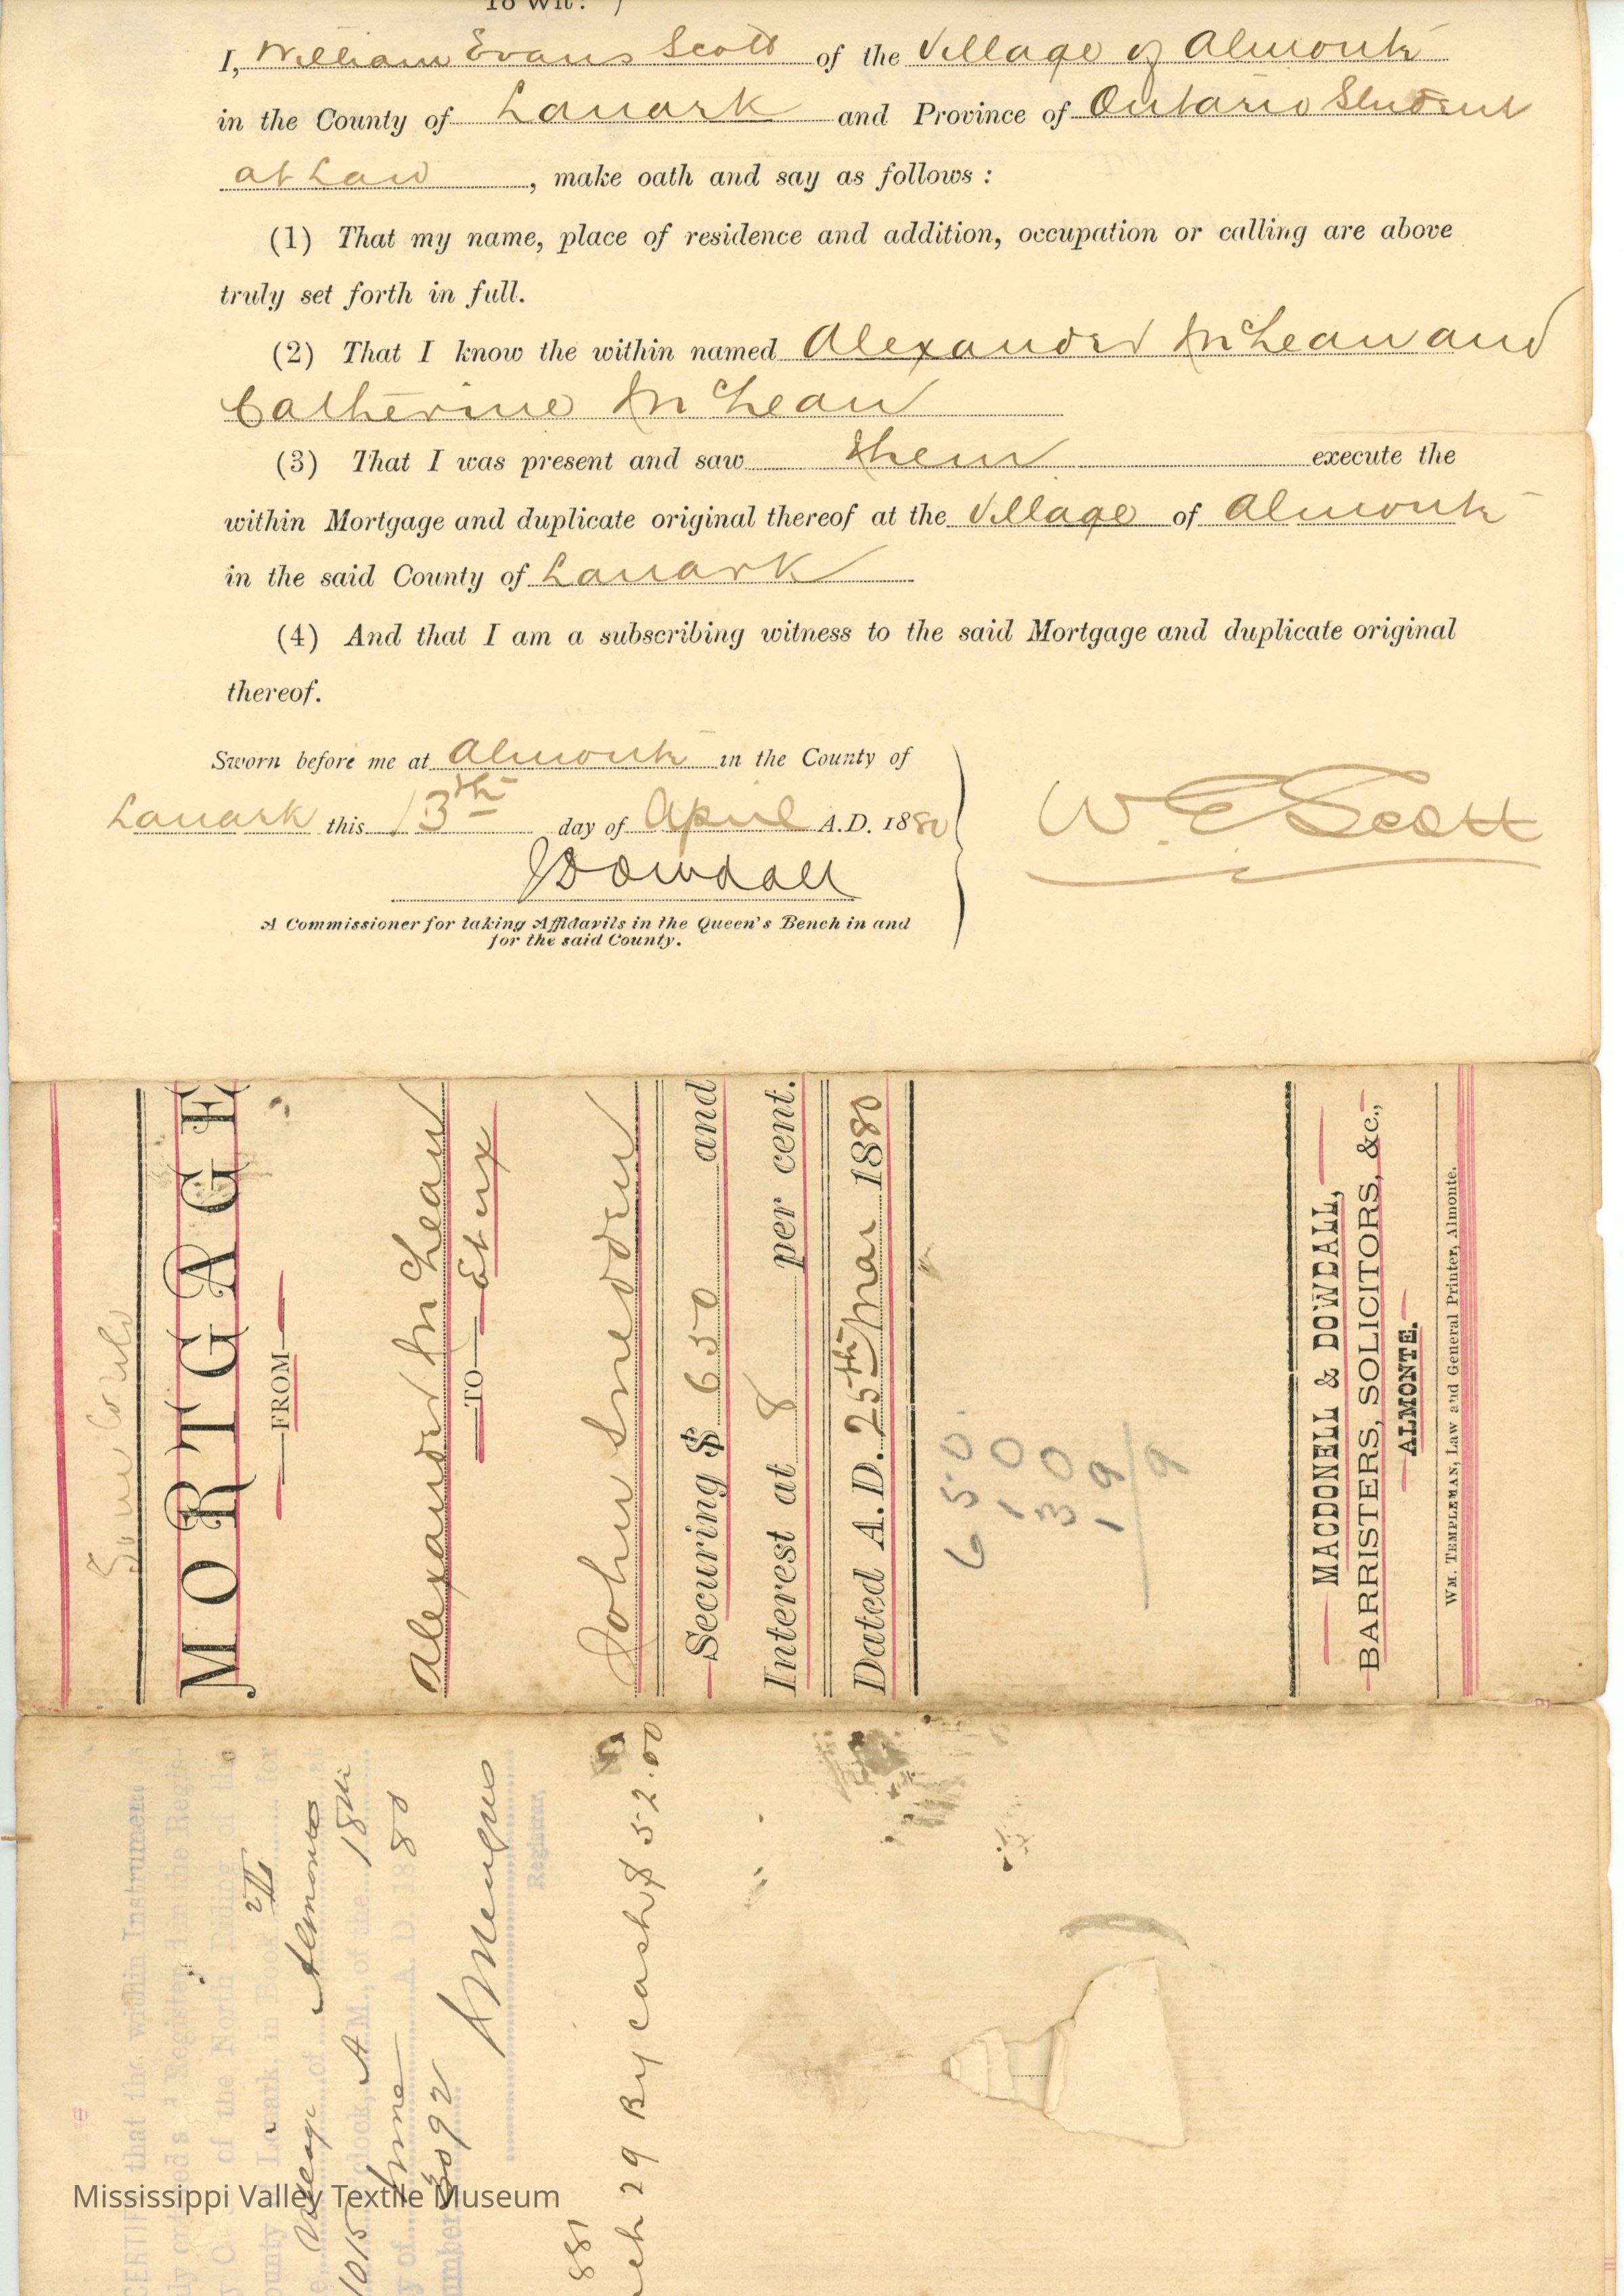 To Wit: )
I, William Evans Scott of the Village of Almonte
in the County of Lanark and Province of Ontario Student
at Law , make oath and say as follows :
(1) That my name, place of residence and addition, occupation or calling are above
truly set forth in full.
(2) That I know the within named Alexander McLean and
Catherine McLean
(3) That I was present and saw them execute the
within Mortgage and duplicate original thereof at the Village of Almonte
in the said County of Lanark
(4) And that I am a subscribing witness to the said Mortgage and duplicate original
thereof.
Sworn before me at Almonte in the County of
Lanark this 13th day of April A.D. 1880
J Dowdall
W. E Scott
A Commissioner for taking Affidavits in the Queen's Bench in and
for the said County.
MORTGAGE
—FROM—
Alexander McLean
—TO— Et ux
John Sneddon
Securing $ 650 and
Interest at 8 per cent.
Dated A.D. 25th Mar 1880
650.
100
30
19
9
MACDONELL & DOWDALL,
BARRISTERS, SOLICITORS, &c.,
—ALMONTE.—
WM. TEMPLEMAN, Law and General Printer, Almonte.
CERTIFY that the within Instrument
in the Regis-
of the North Riding of the
County Lanark, in Book for
Village of Almonte at
1015 o'clock, A M., of the 18th
y of June A. D. 1880
umber 3092
Menzies
Registrar.
881
ch 29 By cash $ 52.00
Mississippi Valley Textile Museum